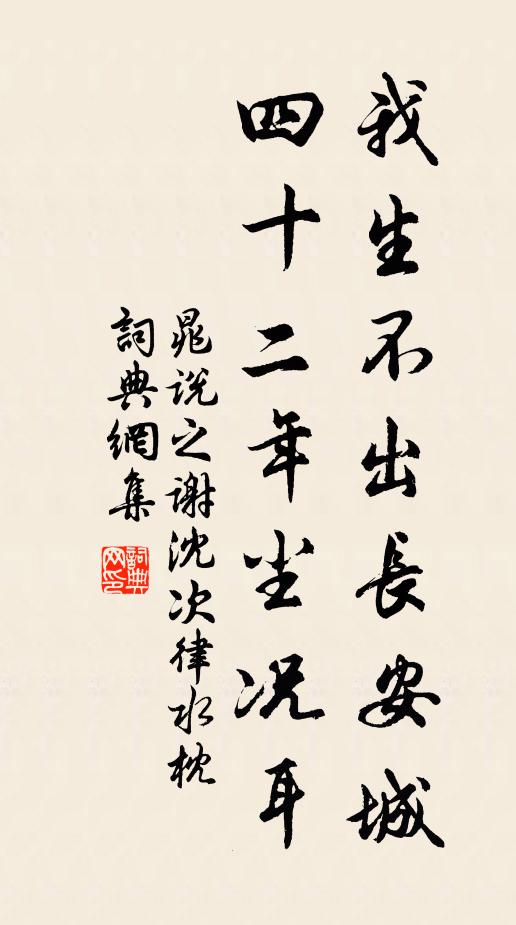 我生不出長安城
四十二年尘况耳
晁說之謝沈次律水枕
詞典網集
詞典网印